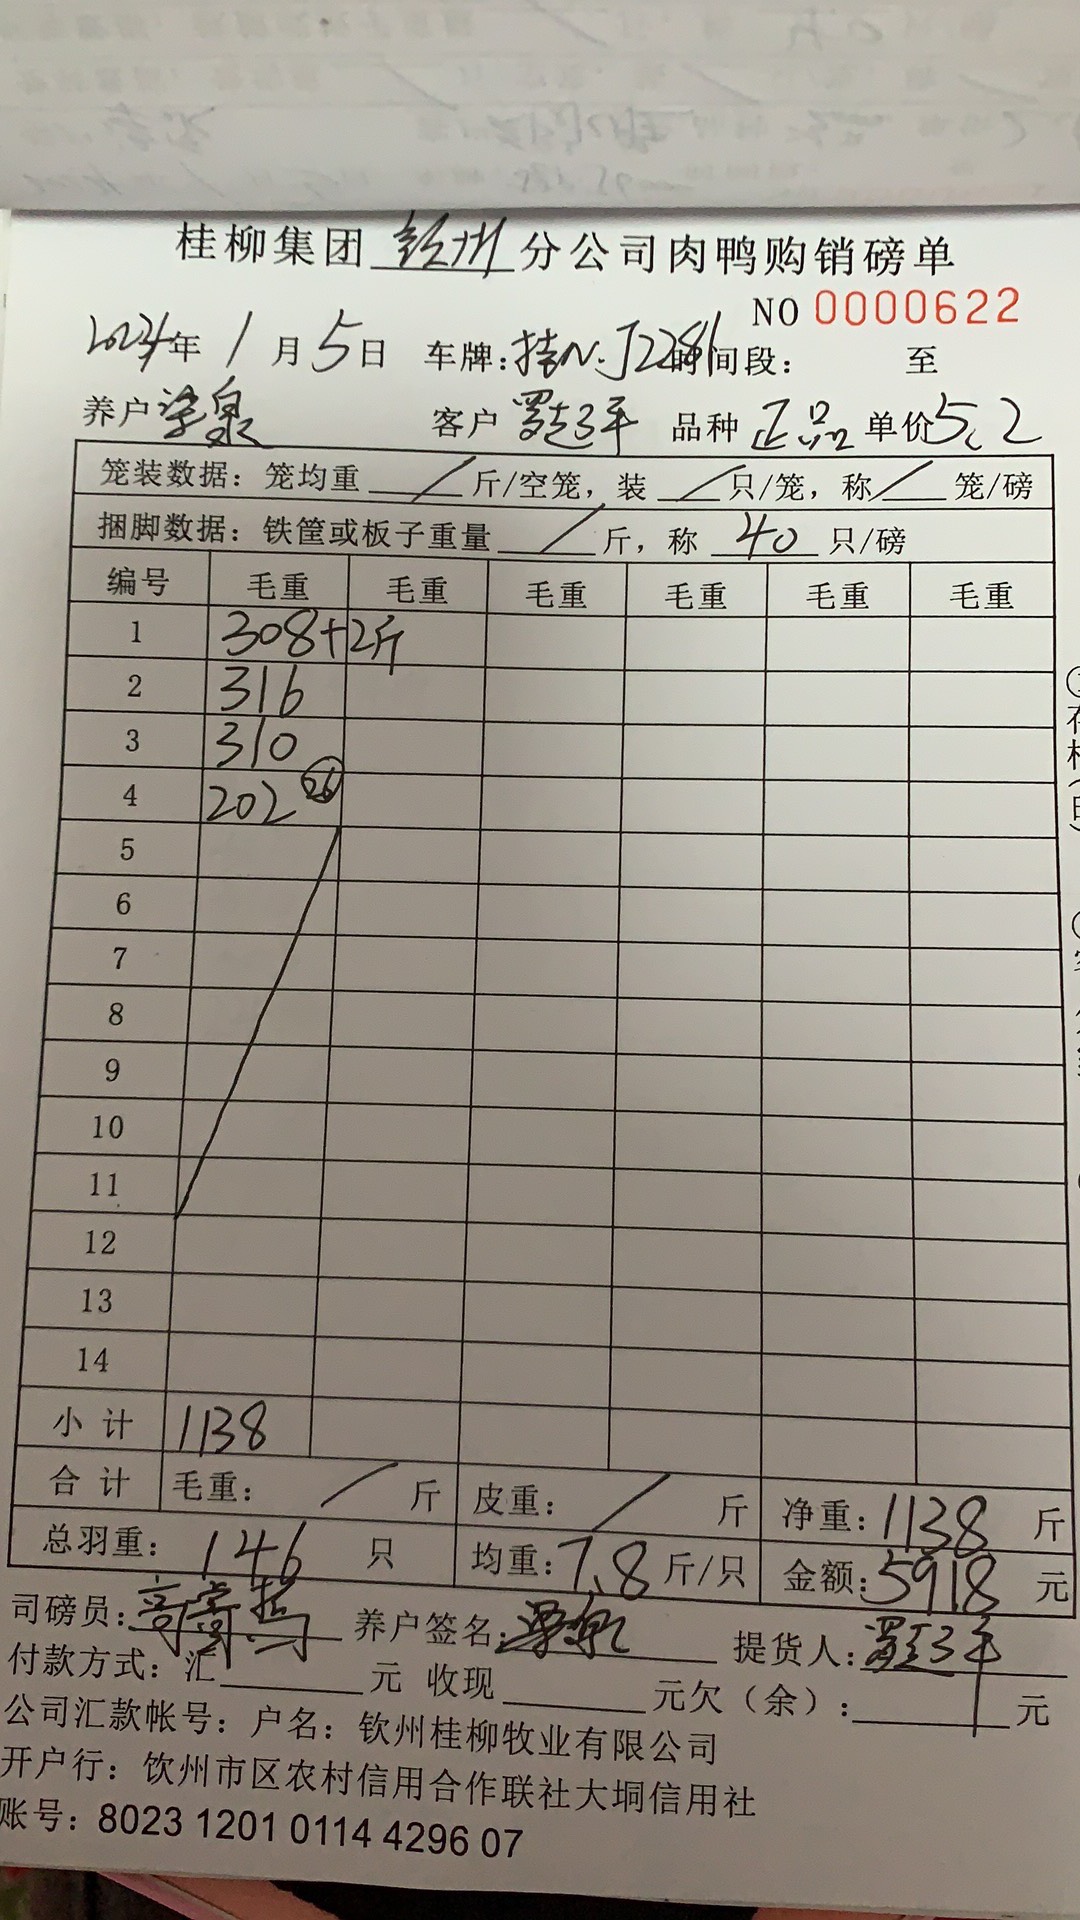 桂柳集团钦州分公司肉鸭购销磅单
NO 0000622
2024年1月5日 车牌:桂N·J2281时间段: 至
养户 泉 客户 平 品种 正品 单价5.2
笼装数据: 笼均重 / 斤/空笼, 装 / 只/笼, 称 / 笼/磅
捆脚数据: 铁筐或板子重量 / 斤, 称 40 只/磅
编号 毛重 毛重 毛重 毛重 毛重 毛重
1 308+2斤
2 316
3 310
4 202 26
5
6
7
8
9
10
11
12
13
14
小计 1138
合计 毛重: / 斤 皮重: / 斤 净重: 1138 斤
总羽重: 146 只 均重: 7.8 斤/只 金额: 5918 元
司磅员: 养户签名: 提货人: 平
付款方式: 汇 元 收现 元欠(余): 元
公司汇款帐号: 户名: 钦州桂柳牧业有限公司
开户行: 钦州市区农村信用合作联社大垌信用社
账号: 8023 1201 0114 4296 07